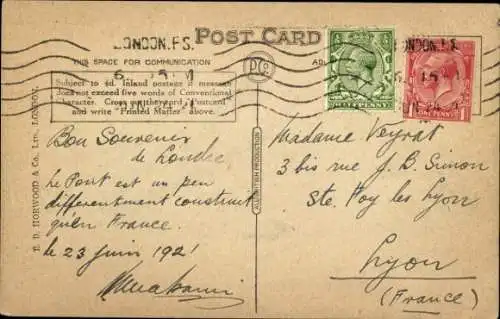 LONDON.F.S.
POST CARD
THIS SPACE FOR COMMUNICATION
Subject to ½d. Inland postage if message
does not exceed five words of Conventional
character. Cross out the word "Postcard"
and write "Printed Matter" above.
E. D. HORWOOD & Co., LTD., LONDON.
Bon Souvenir
de Londres
Le Pont est un peu
differentment construit
qu'en France.
le 23 Juin 1921
ALL BRITISH PRODUCTION
LONDON.F.S.
HALFPENNY
ONE PENNY
Madame Veyrat
3 bis rue J. B. Simon
Ste. Foy les Lyon
Lyon
(France)